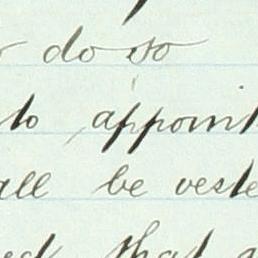 do so
to appoint
all be veste
ed that